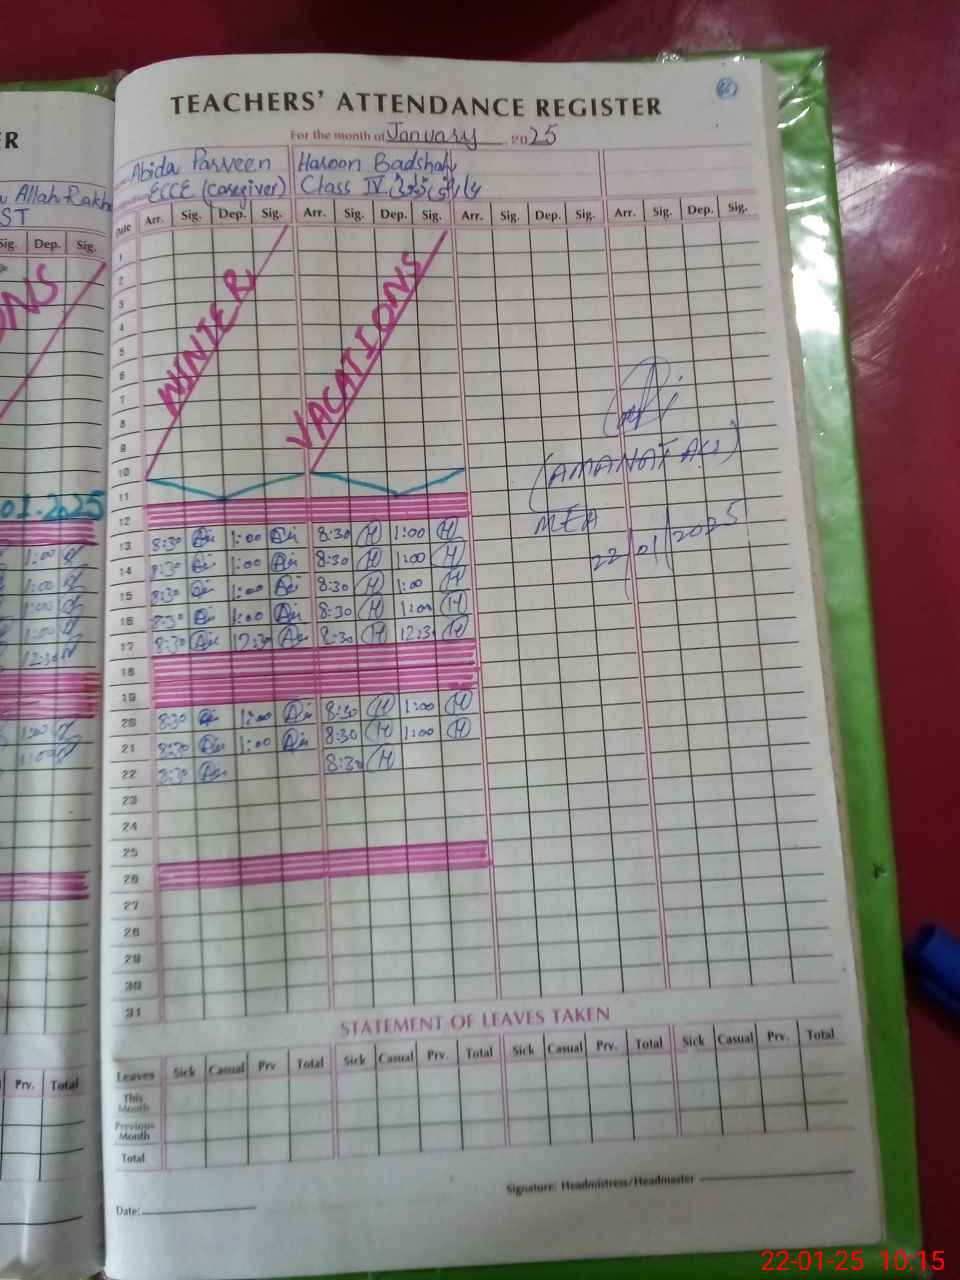 TEACHERS' ATTENDANCE REGISTER
For the month of January, 2025
Abida Parveen Haroon Badshah
ECCE (caregiver) Class IV
ER
Allah Rakha
ST
Date Arr. Sig. Dep. Sig. Arr. Sig. Dep. Sig. Arr. Sig. Dep. Sig. Arr. Sig. Dep. Sig.
Sig. Dep. Sig.
WINTER VACATIONS
ONS
1
2
3
4
5
6
7
8
9
10
11
12
01.2025
13 8:30 1:00 8:30 H 1:00 H
14 8:30 1:00 8:30 H 1:00 H
15 8:30 1:00 8:30 H 1:00 H
16 8:30 1:00 8:30 H 1:00 H
17 8:30 12:30 8:30 H 12:30 H
18
19
20 8:30 1:00 8:30 H 1:00 H
21 8:30 1:00 8:30 H 1:00 H
22 8:30 8:30 H
23
24
25
26
27
28
29
30
31
1:00
1:00
1:00
1:00
12:30
1:00
1:00
(AMANAT ALI)
MEA
22/01/2025
STATEMENT OF LEAVES TAKEN
Leaves Sick Casual Prv. Total Sick Casual Prv. Total Sick Casual Prv. Total Sick Casual Prv. Total
Prv. Total
This Month
Previous Month
Total
Signature: Headmistress/Headmaster
Date:
22-01-25 10:15